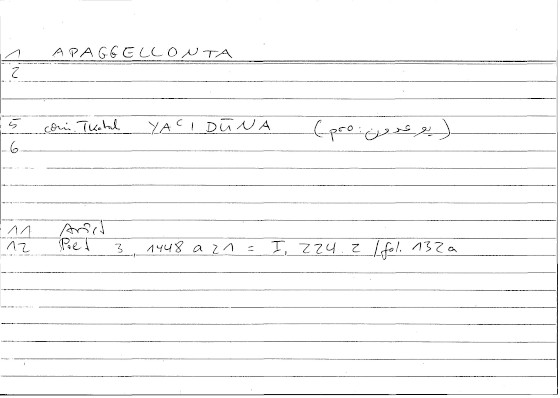 1 APAGGELLONTA
2
5 coni. YAʿIDŪNA (pro: يوعدون)
6
11 Arist
12 Poet 3, 1448 a 21 = I, 224.2 /fol. 132a